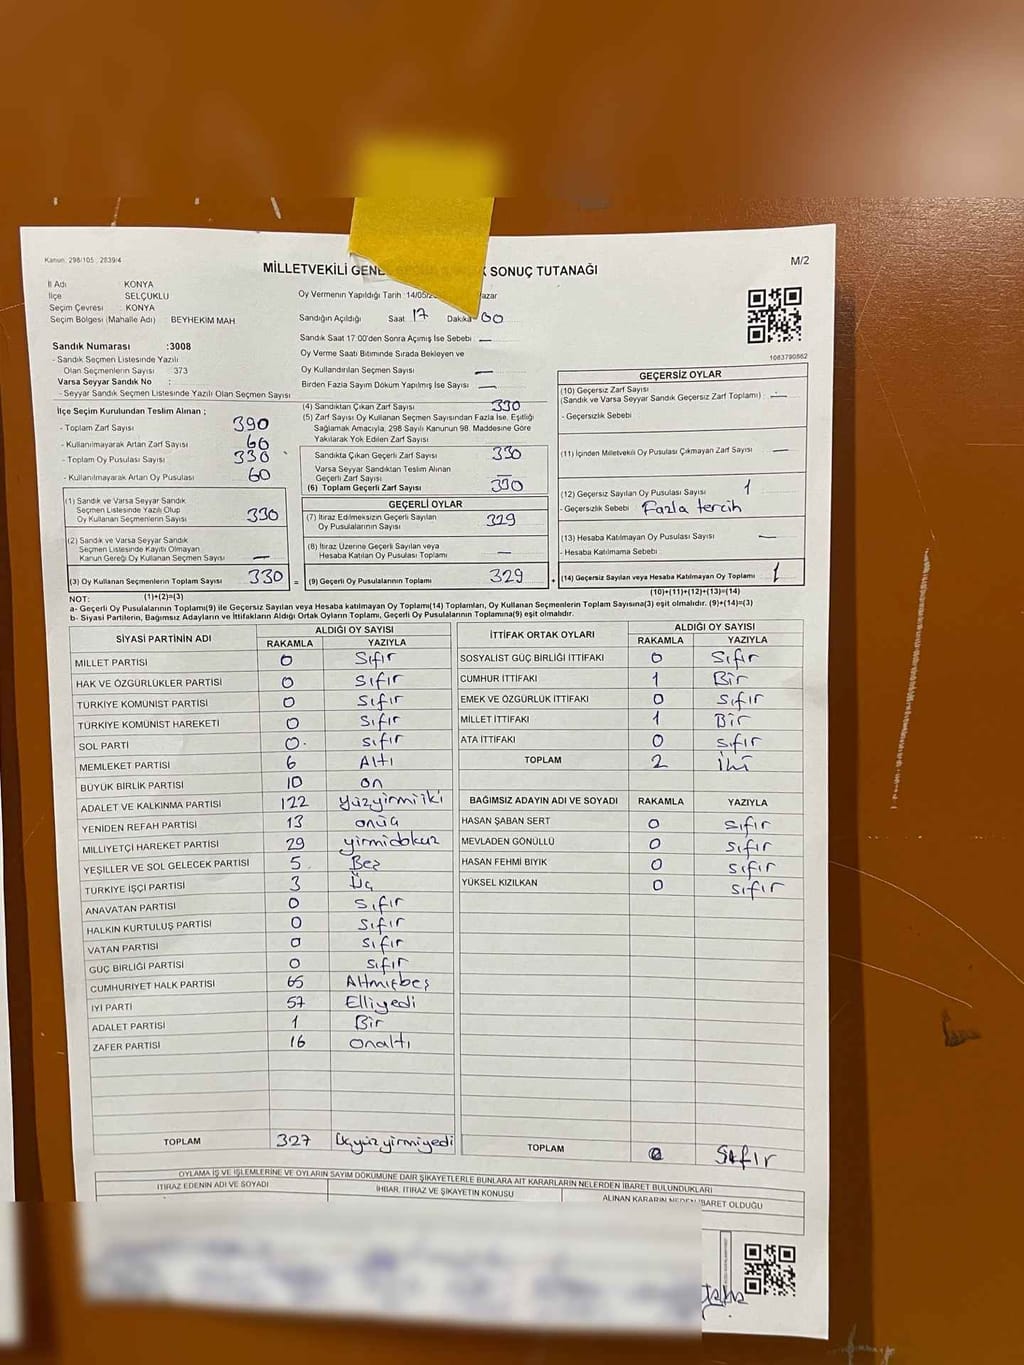 Kanun: 298/105 : 2839/4
MİLLETVEKİLİ GENEL SONUÇ TUTANAĞI
M/2
İl Adı : KONYA
İlçe : SELÇUKLU
Seçim Çevresi : KONYA
Seçim Bölgesi (Mahalle Adı) : BEYHEKIM MAH
Oy Vermenin Yapıldığı Tarih : 14/05/
Sandığın Açıldığı Saat 17 Dakika 00
Sandık Saat 17:00'den Sonra Açımış İse Sebebi : —
Oy Verme Saati Bitiminde Sırada Bekleyen ve
Oy Kullandırılan Seçmen Sayısı —
Birden Fazla Sayım Döküm Yapılmış İse Sayısı : —
1063790862
Sandık Numarası :3008
- Sandık Seçmen Listesinde Yazılı
Olan Seçmenlerin Sayısı : 373
Varsa Seyyar Sandık No :
- Seyyar Sandık Seçmen Listesinde Yazılı Olan Seçmen Sayısı
İlçe Seçim Kurulundan Teslim Alınan ;
- Toplam Zarf Sayısı 390
- Kullanılmayarak Artan Zarf Sayısı 60
- Toplam Oy Pusulası Sayısı 330
- Kullanılmayarak Artan Oy Pusulası 60
(1) Sandık ve Varsa Seyyar Sandık
Seçmen Listesinde Yazılı Olup
Oy Kullanan Seçmenlerin Sayısı 330
(2) Sandık ve Varsa Seyyar Sandık
Seçmen Listesinde Kayıtlı Olmayan
Kanun Gereği Oy Kullanan Seçmen Sayısı —
(3) Oy Kullanan Seçmenlerin Toplam Sayısı 330 =
(4) Sandıktan Çıkan Zarf Sayısı 330
(5) Zarf Sayısı Oy Kullanan Seçmen Sayısından Fazla İse, Eşitliği
Sağlamak Amacıyla, 298 Sayılı Kanunun 98. Maddesine Göre
Yakılarak Yok Edilen Zarf Sayısı
Sandıkta Çıkan Geçerli Zarf Sayısı 330
Varsa Seyyar Sandıktan Teslim Alınan
Geçerli Zarf Sayısı —
(6) Toplam Geçerli Zarf Sayısı 330
GEÇERLİ OYLAR
(7) İtiraz Edilmeksizin Geçerli Sayılan
Oy Pusulalarının Sayısı 329
(8) İtiraz Üzerine Geçerli Sayılan veya
Hesaba Katılan Oy Pusulası Toplamı —
(9) Geçerli Oy Pusulalarının Toplamı 329 +
GEÇERSİZ OYLAR
(10) Geçersiz Zarf Sayısı
(Sandık ve Varsa Seyyar Sandık Geçersiz Zarf Toplamı) : —
- Geçersizlik Sebebi
(11) İçinden Milletvekili Oy Pusulası Çıkmayan Zarf Sayısı —
(12) Geçersiz Sayılan Oy Pusulası Sayısı 1
- Geçersizlik Sebebi Fazla tercih
(13) Hesaba Katılmayan Oy Pusulası Sayısı —
- Hesaba Katılmama Sebebi
(14) Geçersiz Sayılan veya Hesaba Katılmayan Oy Toplamı 1
NOT: (1)+(2)=(3) (10)+(11)+(12)+(13)=(14)
a- Geçerli Oy Pusulalarının Toplamı(9) ile Geçersiz Sayılan veya Hesaba katılmayan Oy Toplamı(14) Toplamları, Oy Kullanan Seçmenlerin Toplam Sayısına(3) eşit olmalıdır. (9)+(14)=(3)
b- Siyasi Partilerin, Bağımsız Adayların ve İttifakların Aldığı Ortak Oyların Toplamı, Geçerli Oy Pusulalarının Toplamına(9) eşit olmalıdır.
SİYASİ PARTİNİN ADI ALDIĞI OY SAYISI
RAKAMLA YAZIYLA
MİLLET PARTİSİ 0 Sıfır
HAK VE ÖZGÜRLÜKLER PARTİSİ 0 Sıfır
TÜRKİYE KOMÜNİST PARTİSİ 0 Sıfır
TÜRKİYE KOMÜNİST HAREKETİ 0 Sıfır
SOL PARTİ 0 sıfır
MEMLEKET PARTİSİ 6 Altı
BÜYÜK BİRLİK PARTİSİ 10 on
ADALET VE KALKINMA PARTİSİ 122 yüzyirmiiki
YENİDEN REFAH PARTİSİ 13 onüç
MİLLİYETÇİ HAREKET PARTİSİ 29 yirmidokuz
YEŞİLLER VE SOL GELECEK PARTİSİ 5 Beş
TÜRKİYE İŞÇİ PARTİSİ 3 Üç
ANAVATAN PARTİSİ 0 Sıfır
HALKIN KURTULUŞ PARTİSİ 0 sıfır
VATAN PARTİSİ 0 sıfır
GÜÇ BİRLİĞİ PARTİSİ 0 sıfır
CUMHURİYET HALK PARTİSİ 65 Altmışbeş
İYİ PARTİ 57 Elliyedi
ADALET PARTİSİ 1 Bir
ZAFER PARTİSİ 16 onaltı
TOPLAM 327 Üçyüzyirmiyedi
İTTİFAK ORTAK OYLARI ALDIĞI OY SAYISI
RAKAMLA YAZIYLA
SOSYALİST GÜÇ BİRLİĞİ İTTİFAKI 0 Sıfır
CUMHUR İTTİFAKI 1 Bir
EMEK VE ÖZGÜRLÜK İTTİFAKI 0 sıfır
MİLLET İTTİFAKI 1 Bir
ATA İTTİFAKI 0 sıfır
TOPLAM 2 İki
BAĞIMSIZ ADAYIN ADI VE SOYADI RAKAMLA YAZIYLA
HASAN ŞABAN SERT 0 sıfır
MEVLADEN GÖNÜLLÜ 0 sıfır
HASAN FEHMİ BIYIK 0 sıfır
YÜKSEL KIZILKAN 0 sıfır
TOPLAM 0 Sıfır
OYLAMA İŞ VE İŞLEMLERİNE VE OYLARIN SAYIM DÖKÜMÜNE DAİR ŞİKAYETLERLE BUNLARA AİT KARARLARIN NELERDEN İBARET BULUNDUKLARI
İTİRAZ EDENİN ADI VE SOYADI İHBAR, İTİRAZ VE ŞİKAYETİN KONUSU ALINAN KARARIN NEDEN İBARET OLDUĞU